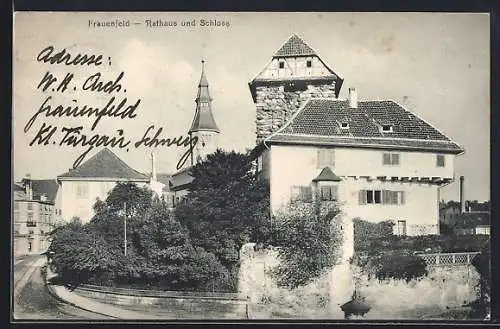 Frauenfeld – Rathaus und Schloss
Adresse:
W. H. Arch.
Frauenfeld
Kt. Türgau, Schweiz